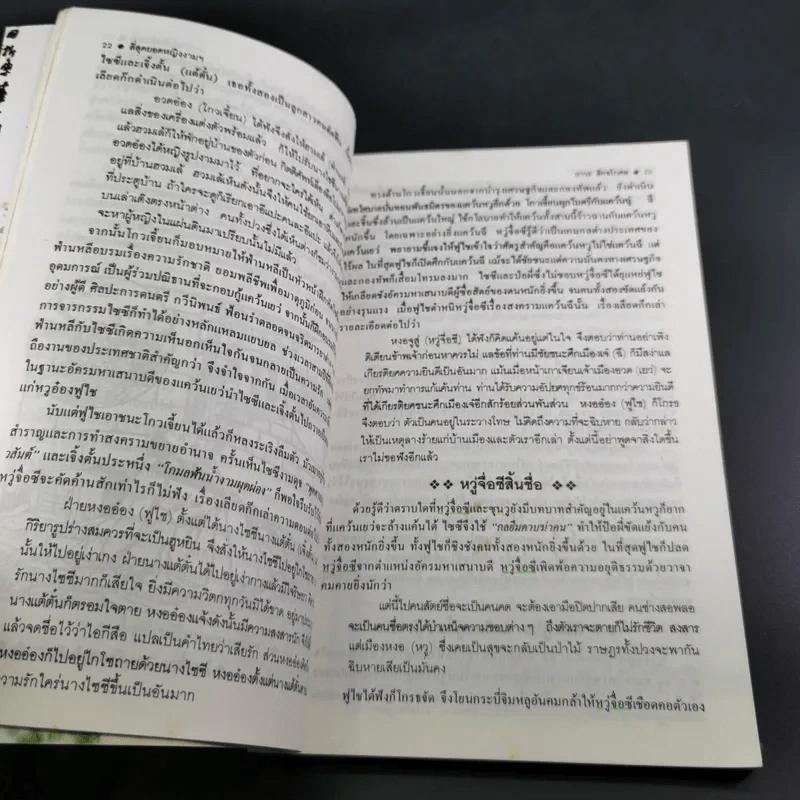 22 ● ที่สุดยอดหญิงงามฯ
ไซซีและเจิ้งตั้น (แต้ตั้น) เธอทั้งสองเป็นลูกสาวคนตัด
เลียดก๊กดำเนินต่อไปว่า
อวดอ๋อง (โกวเจี้ยน) ได้ฟังจึงสั่งให้ฮวมเล้
แลสิ่งของเครื่องแต่งตัวพร้อมแล้ว ก็ให้ไปรับนาง
แล้วฮวมเล้ก็ให้พักอยู่บ้านของตัวก่อน
อวดอ๋องได้หญิงรูปงามมาไว้ ที่อยากจะใคร่ได้เห็น
อยู่ที่บ้านฮวมเล้ ฮวมเล้เห็นดังนั้นจึงให้คนใช้ยกเอา
ที่ประตูบ้าน ถ้าใครจะดูก็เรียกเอาอีแปะคนละอีแปะ แล้ว
บนเล่าเต๊งตรงหน้าต่าง คนทั้งปวงซึ่งได้เห็นต่างก็
จะหาผู้หญิงในแผ่นดินมาเปรียบนั้นไม่มีแล้ว
จากนั้นโกวเจี้ยนก็มอบหมายให้ฟ่านหลีเป็นหัวหน้า
ฟ่านหลีอบรมเรื่องความรักชาติ ยอมพลีชีพเพื่อมาตุภูมิก่อน
อุดมการณ์ เป็นผู้ร่วมปณิธานที่จะกอบกู้แคว้นเยว่ จากนั้นก็ฝึก
อย่างผู้ดี ศิลปะการดนตรี กวีนิพนธ์ ฟ้อนรำตลอดจนจริตมารยา
การจารกรรมไซซีก็ทำได้อย่างหลักแหลมแยบยล ช่วงเวลาสามปี
ฟ่านหลีกับไซซีเกิดความเห็นอกเห็นใจกันจนกลายเป็นความรัก
ถืองานของประเทศชาติสำคัญกว่า จึงจำใจจากกัน เมื่อเวลาอันควร
ในฐานะอัครมหาเสนาบดีของแคว้นเยว่นำไซซีและเจิ้งตั้นไปถวาย
แก่หวูอ๋องฟูไช
นับแต่ฟูไชเอาชนะโกวเจี้ยนได้แล้วก็หลงระเริงลืมตัว
สำราญและการทำสงครามขยายอำนาจ ครั้นเห็นไซซีงามดุจ
และเจิ้งตั้นประหนึ่ง "โกมลพันน้ำงามผุดผ่อง" ก็พอใจรีบ
หวู่จื่อซีจะคัดค้านสักเท่าไรก็ไม่ฟัง เรื่องเลียดก๊กเล่าความตอน
ฝ่ายหงออ๋อง (ฟูไช) ตั้งแต่ได้นางไซซีนางแต้ตั้น
กิริยารูปร่างสมควรที่จะเป็นฮูหยิน จึงสั่งให้นางไซซีไปอยู่
นั้นให้ไปอยู่เง่าเกง ฝ่ายนางแต้ตั้นได้ไปอยู่เง่ากาง
รักนางไซซีมากก็เสียใจ ยิ่งมีความวิตกทุกวันมิได้ขาด
นางแต้ตั้นก็ตรอมใจตาย หงออ๋องแจ้งดังนั้นมีความสงสารนัก
แล้วจดชื่อไว้ว่าไอกีสือ แปลเป็นคำไทยว่าเสียรัก ส่วนหงออ๋อง
หงออ๋องก็ไปอยู่โกโซถายด้วยนางไซซี หงออ๋องตั้งแต่นางแต้ตั้น
ความรักใคร่นางไซซีขึ้นเป็นอันมาก
ทางด้านโกวเจี้ยนนั้นนอกจากบำรุงเศรษฐกิจและกองทัพแล้ว ยังดำเนิน
นโยบายบั่นทอนพันธมิตรของแคว้นหวูอีกด้วย โกวเจี้ยนผูกไมตรีกับแคว้นฉู่ ฉี
และจิ้นซึ่งล้วนเป็นแคว้นใหญ่ ใช้กโลบายทำให้แคว้นทั้งสามนี้ร้าวฉานกับแคว้นหวู
หนักขึ้น โดยเฉพาะอย่างยิ่งแคว้นฉี หวู่จื่อซีรู้ดีว่าเป็นเกมกลต่างประเทศของ
แคว้นเยว่ พยายามชี้แจงให้ฟูไชเข้าใจว่าศัตรูสำคัญคือแคว้นหวูไม่ใช่แคว้นฉี แต่
ไร้ผล ในที่สุดฟูไชก็เปิดศึกกับแคว้นฉี แม้จะได้ชัยชนะแต่ความมั่นคงทางเศรษฐกิจ
และกำลังทหารก็เสื่อมโทรมลงมาก ไซซีและป๋อผี่ซึ่งไม่ชอบหวู่จื่อซีได้ยุแหย่ฟูไช
ให้เกลียดชังอัครมหาเสนาบดีผู้ซื่อสัตย์ของตนหนักยิ่งขึ้น จนคนทั้งสองขัดแย้งกัน
อย่างรุนแรง เมื่อฟูไชตำหนิหวู่จื่อซีเรื่องสงครามแคว้นฉีนั้น เรื่องเลียดก๊กเล่า
รายละเอียดต่อไปว่า
หงอจูสู่ (หวู่จื่อซี) ได้ฟังก็คิดแค้นอยู่แต่ในใจ จึงตอบว่าท่านอย่าเพิ่ง
ติเตียนข้าพเจ้าก่อนหาควรไม่ แลข้อที่ท่านมีชัยชนะศึกเมืองเจ๋ (ฉี) ก็มีสง่าแล
เกียรติยศความยินดีเป็นอันมาก แม้นเมื่อหน้าเกาเจี้ยนเจ้าเมืองอวด (เยว่) จะ
ยกทัพมาทำการแก้แค้นท่าน ท่านได้รับความอัปยศทุกข์ร้อนมากกว่าความยินดี
ที่ได้เกียรติยศชนะศึกเมืองเจ๋อีกสักร้อยส่วนพันส่วน หงออ๋อง (ฟูไช) ก็โกรธ
จึงตอบว่า ตัวเป็นคนอยู่ในระวางโทษ ไม่คิดถึงความที่จะฉิบหาย กลับว่ากล่าว
ให้เป็นเหตุลางร้ายแก่บ้านเมืองและตัวเราอีกเล่า ตั้งแต่นี้อย่าพูดจาสิ่งใดขึ้น
เราไม่ขอฟังอีกแล้ว
❖ หวู่จื่อซีสิ้นชื่อ ❖
ด้วยรู้ดีว่าตราบใดที่หวู่จื่อซีและซุนวูยังมีบทบาทสำคัญอยู่ในแคว้นหวูก็ยาก
ที่แคว้นเยว่จะล้างแค้นได้ ไซซีจึงใช้ "กลยืมดาบฆ่าคน" ทำให้ป๋อผี่ขัดแย้งกับคน
ทั้งสองหนักยิ่งขึ้น ทั้งฟูไชก็ชิงชังคนทั้งสองหนักยิ่งขึ้นด้วย ในที่สุดฟูไชก็ปลด
หวู่จื่อซีจากตำแหน่งอัครมหาเสนาบดี หวู่จื่อซีเพิดพ้อความอยุติธรรมด้วยวาจา
คมคายยิ่งนักว่า
แต่นี้ไปคนสัตย์ซื่อจะเป็นคนคด จะต้องเอามือปิดปากเสีย คนช่างสอพลอ
จะเป็นคนซื่อตรงได้บำเหน็จความชอบต่างๆ ถึงตัวเราจะตายก็ไม่รักชีวิต สงสาร
แต่เมืองหงอ (หวู) ซึ่งเคยเป็นสุขจะกลับเป็นป่าไม้ ราษฎรทั้งปวงจะพากัน
ฉิบหายเสียเป็นมั่นคง
ฟูไชได้ฟังก็โกรธจัด จึงโยนกระบี่จิมหลูอันคมกล้าให้หวู่จื่อซีเชือดคอตัวเอง